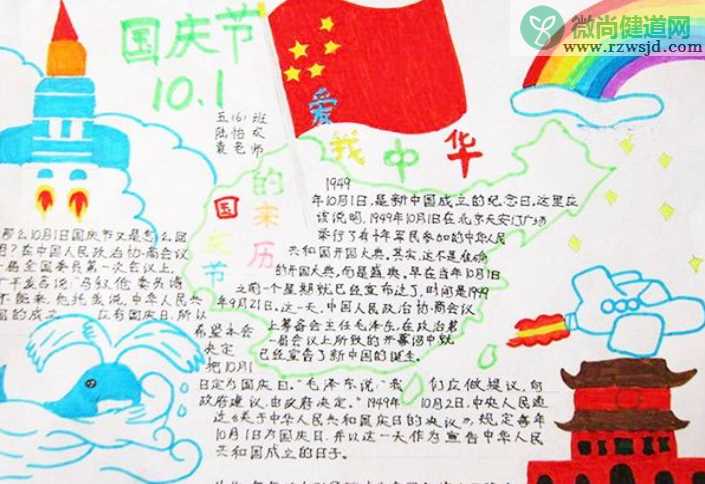 微尚健道网
www.rzwsjd.com
国庆节
10.1
五(6)班
袁老师
爱我中华
国庆节的来历
1949
年10月1日,是新中国成立的纪念日,这里应
该说明,1949年10月1日在北京天安门广场
举行了有
军民参加的中华人民
共和国开国大典。其实,这不是准确
的开国大典,而是盛典,早在当年10月1日
之前一个星期就已经宣布过了,时间是1949
年9月21日。这一天,中国人民政治协商会议
上筹备会主任毛泽东,在政治第
一届会议上所致的开幕词中就
已经宣告了新中国的诞生。
那么10月1日国庆节又是怎么回
?在中国人民政治协商会议
一届全国委员第一次会议上,
言说:“马叙伦委员请
不能来,他托我说,中华人民共
国的成立
应有国庆日,所以
希望本会
决定
把10月1
日定为国庆日。”毛泽东说,“我们应做提议,向
政府建议,由政府决定。”1949年10月2日,中央人民
《关于中华人民共和国国庆日的决议》,规定每年
10月1日为国庆日,并以这一天作为宣告中华人民
共和国成立的日子。